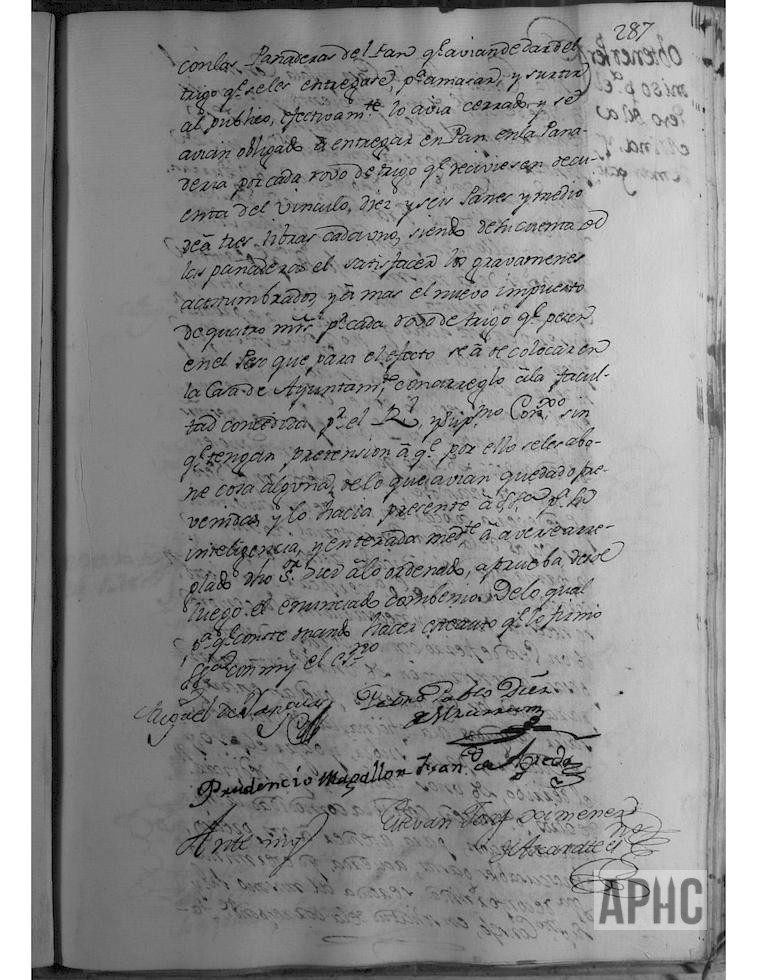 287
con las Panaderas del Pan q.e avian de dar del
trigo q.e se les entregase, p.a amasar, y surtir
al publico, efectivam.te lo avia cerrado, y se
avian obligado á entregar en Pan en la Pana-
deria por cada rovo de trigo q.e reciviesen de cu-
enta del vinculo, diez y seis Panes y medio
de á tres libras cada uno, siendo de su cuenta de
las panaderas el satisfacer los gravamenes
acostumbrados, y á mas el nuevo impuesto
de quatro mrs. p.r cada rovo de trigo q.e pesen
en el Peso que para el efecto se á de colocar en
la Casa de Ayuntam.to con arreglo á la facul-
tad concedida p.r el R.l y Sup.mo Con.xo sin
q.e tengan pretension á q.e por ello se les abo-
ne cosa alguna, de lo que avian quedado pre-
venidas, y lo hacia presente á p.a su
inteligencia, y enterada med.te á averse arre-
glado dho S.r Diez á lo ordenado, aprueba desde
luego el enunciado combenio. De lo qual
p.a q.e conste mando hacer este auto q.e lo firmó
con mi el Ess.no
Miguel de Pedro Pablo Diez
Prudencio Magallon Fran.co de
Ante mi Estevan Josef Ximenez
de Azcarate es.no
Obtener
miso p.a el
Peso
APHC